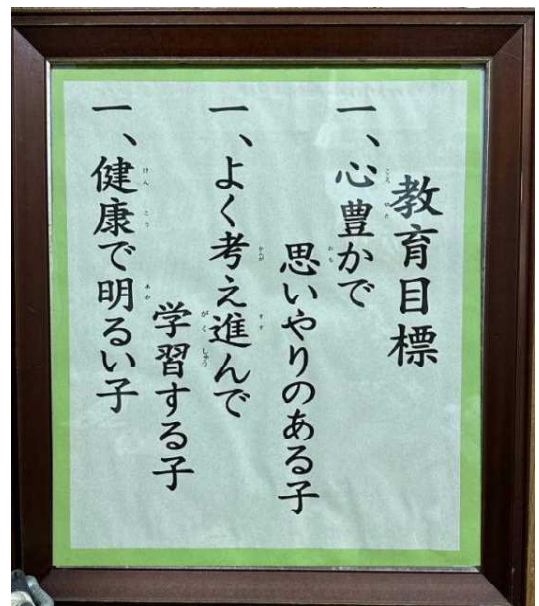 教育目標
一、心豊かで
思いやりのある子
一、よく考え進んで
学習する子
一、健康で明るい子